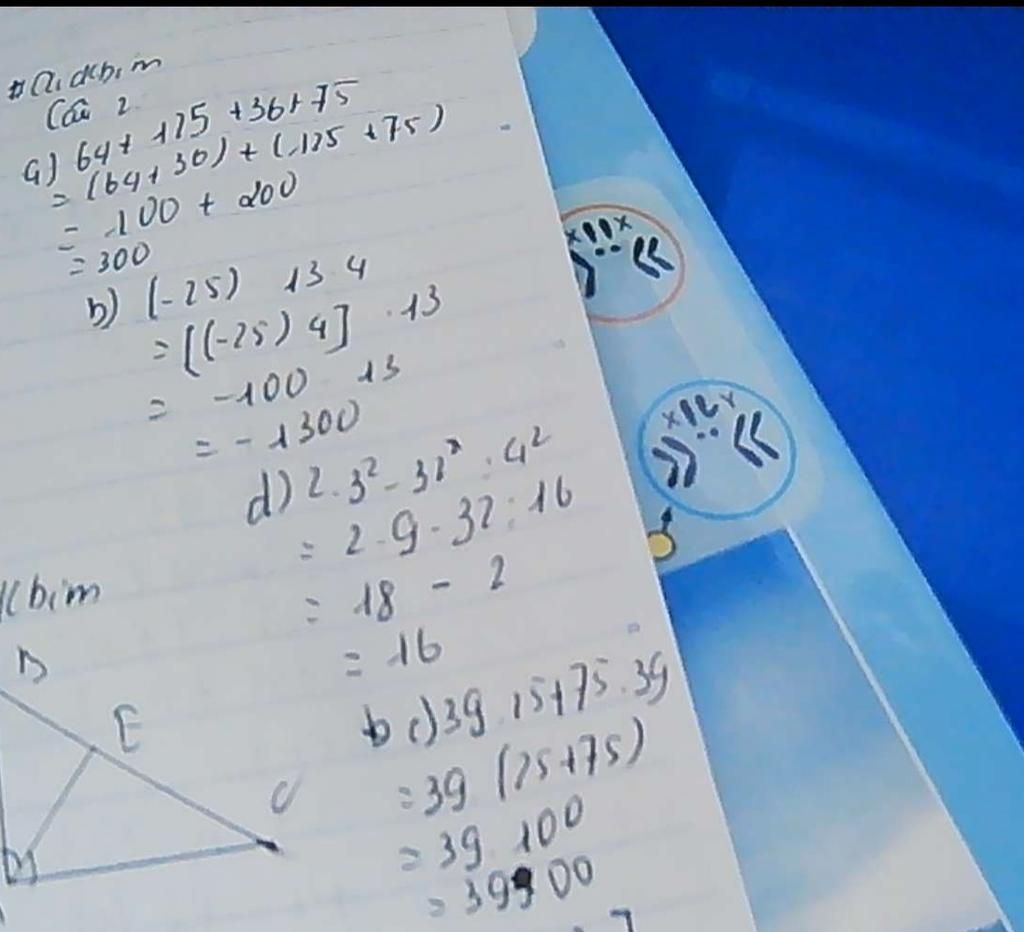 Câu 2
a) 64 + 125 + 36 + 75
= (64 + 36) + (125 + 75)
= 100 + 200
= 300
b) (-25) 13 4
= [(-25) 4] . 13
= -100 13
= -1300
d) 2.3² - 32 : 4²
= 2.9 - 32 : 16
= 18 - 2
= 16
c) 39 25 + 75 . 39
= 39 (25 + 75)
= 39 100
= 3900
E
C
M